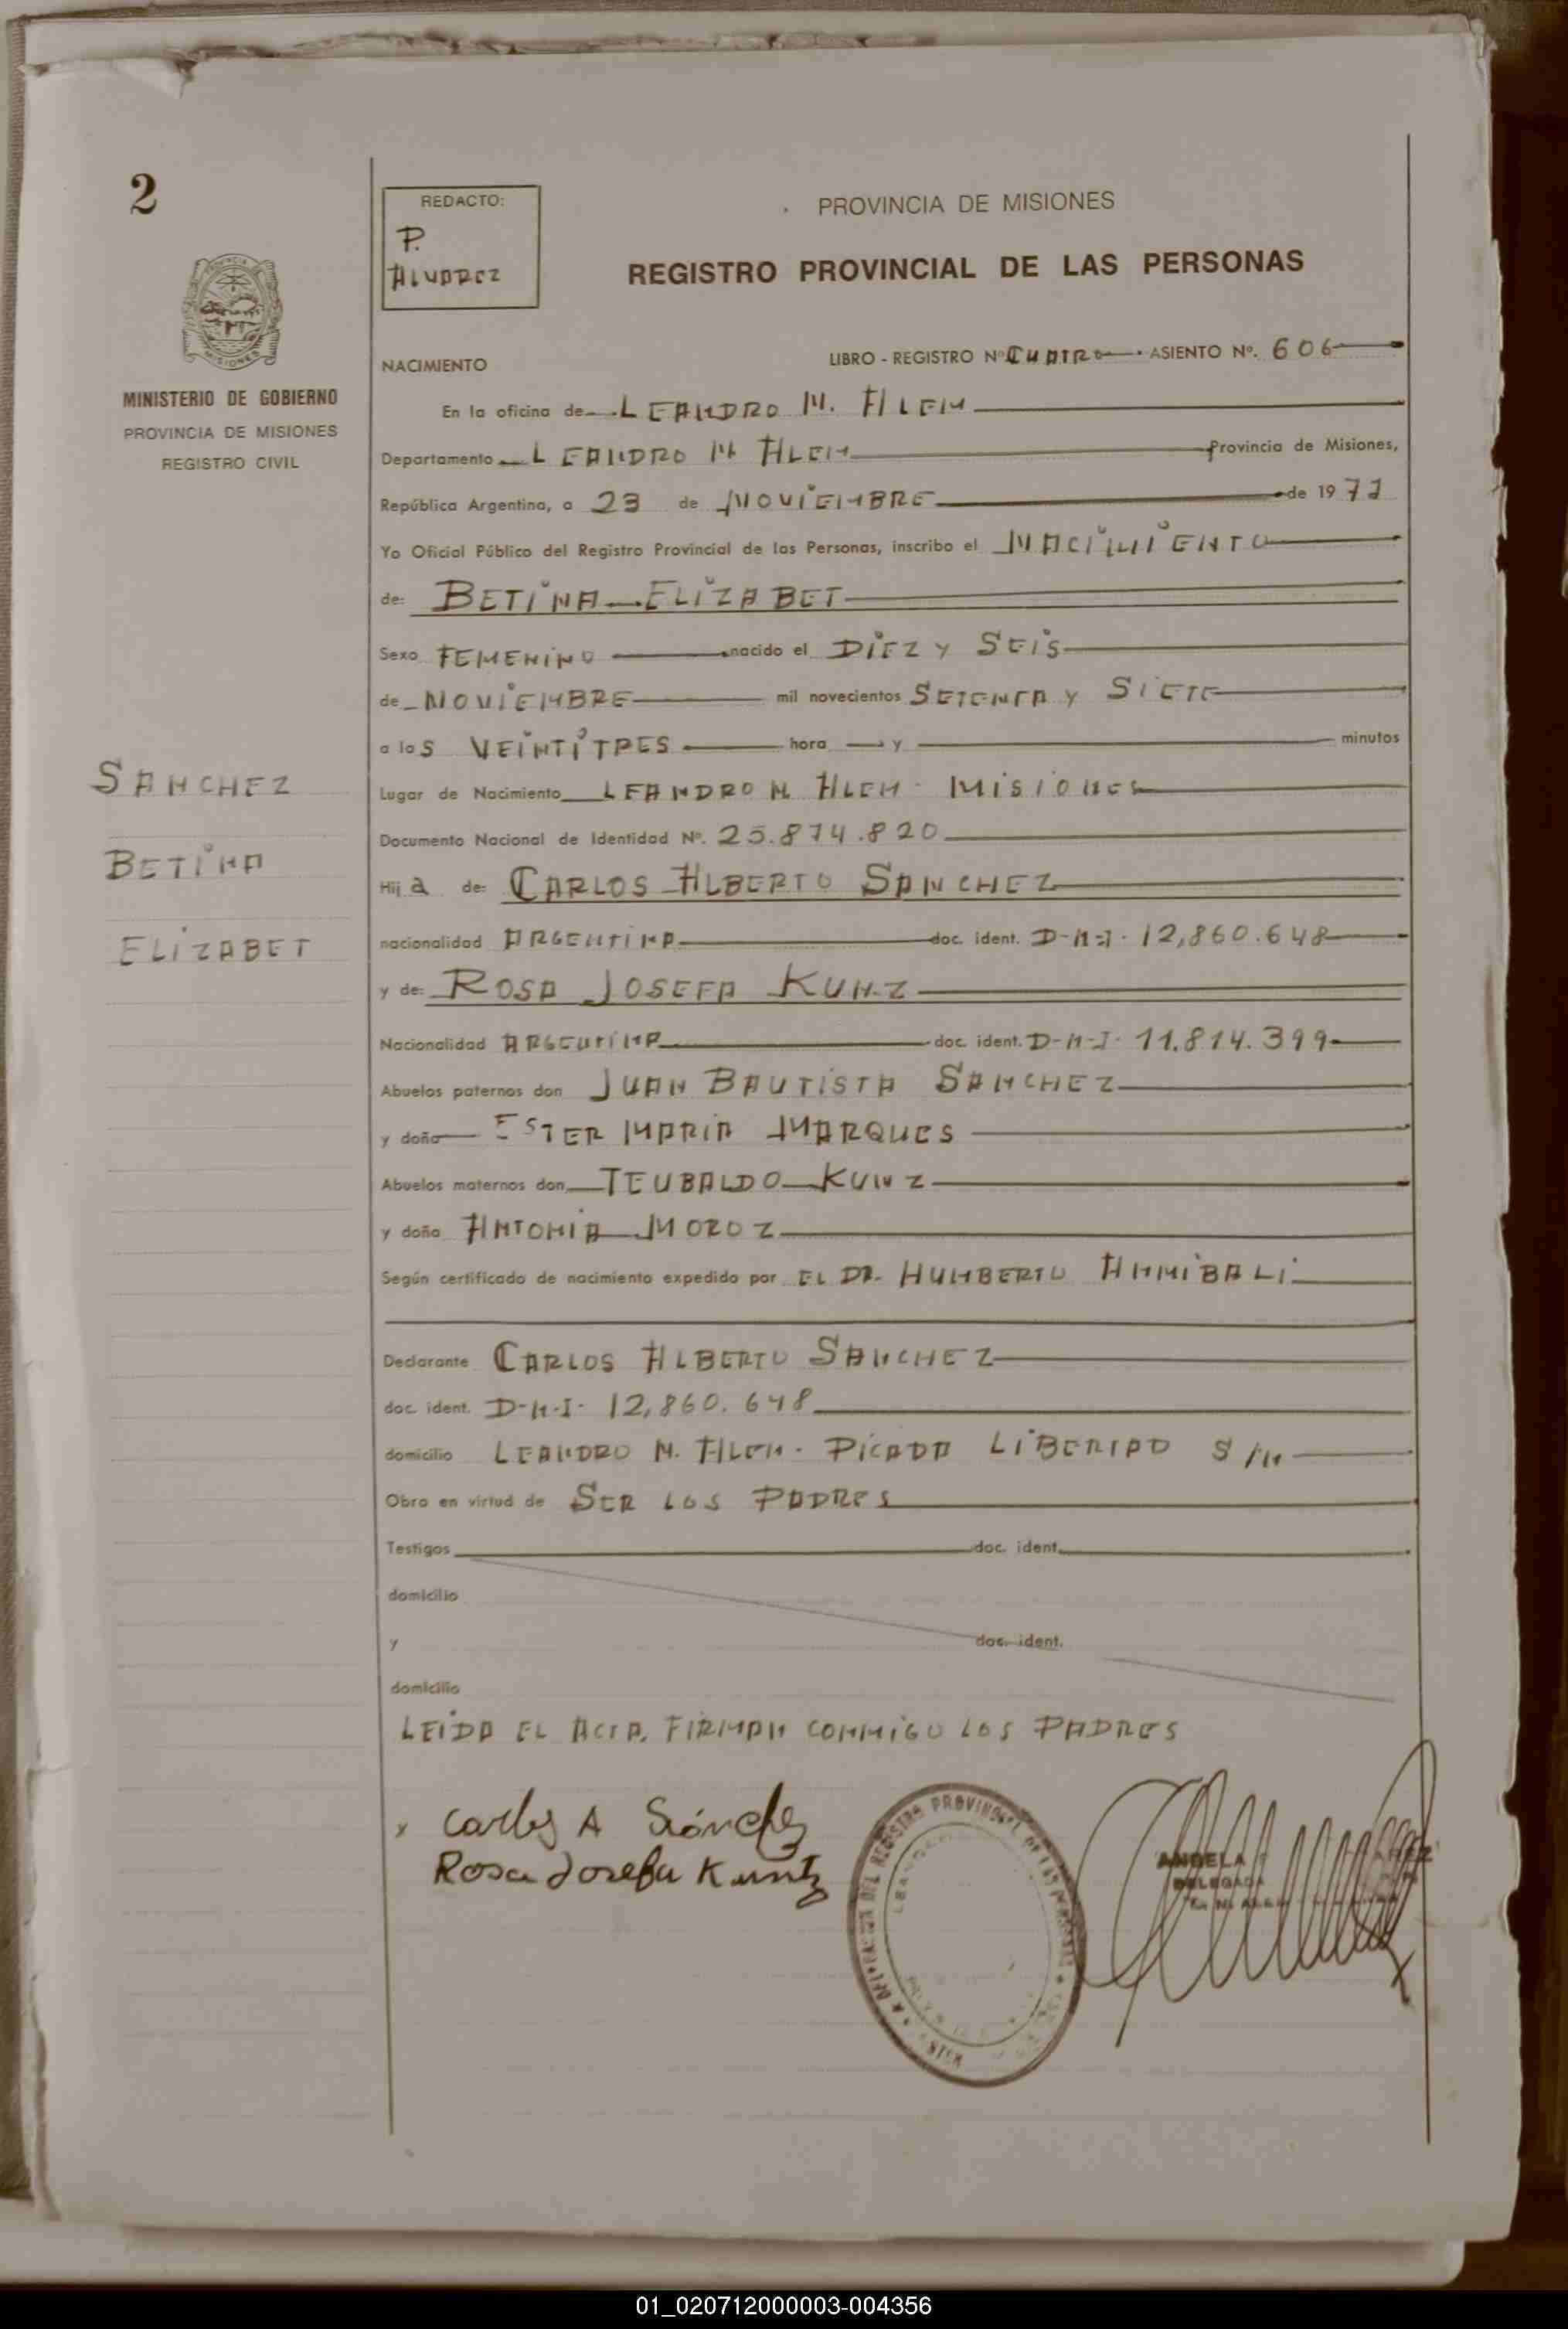 2
REDACTO:
P.
ALVAREZ
PROVINCIA DE MISIONES
REGISTRO PROVINCIAL DE LAS PERSONAS
MINISTERIO DE GOBIERNO
PROVINCIA DE MISIONES
REGISTRO CIVIL
NACIMIENTO
LIBRO - REGISTRO Nº CUATRO ASIENTO Nº. 606
En la oficina de LEANDRO N. ALEM
Departamento LEANDRO N. ALEM Provincia de Misiones,
República Argentina, a 23 de NOVIEMBRE de 1977
Yo Oficial Público del Registro Provincial de las Personas, inscribo el NACIMIENTO
de: BETINA ELIZABET
Sexo FEMENINO nacido el DIEZ Y SEIS
de NOVIEMBRE mil novecientos SETENTA Y SIETE
a las VEINTITRES hora y minutos
Lugar de Nacimiento LEANDRO N. ALEM - MISIONES
Documento Nacional de Identidad Nº. 25.874.820
Hija de: CARLOS ALBERTO SANCHEZ
nacionalidad ARGENTINA doc. ident. D-N-I- 12,860.648
y de: ROSA JOSEFA KUNZ
Nacionalidad ARGENTINA doc. ident. D-N-I- 11.814.399
Abuelos paternos don JUAN BAUTISTA SANCHEZ
y doña ESTER MARIA MARQUES
Abuelos maternos don TEUBALDO KUNZ
y doña ANTONIA MOROZ
Según certificado de nacimiento expedido por EL DR. HUMBERTO ANNIBALI
Declarante CARLOS ALBERTO SANCHEZ
doc. ident. D-N-I- 12,860.648
domicilio LEANDRO N. ALEM - PICADA LIBERTAD S/N
Obra en virtud de SER LOS PADRES
Testigos doc. ident.
domicilio
y doc. ident.
domicilio
LEIDA EL ACTA, FIRMAN CONMIGO LOS PADRES
SANCHEZ
BETINA
ELIZABET
x Carlos A Sánchez
Rosa Josefa Kuntz
DEL REGISTRO PROVINCIAL DE LAS PERSONAS
ANGELA
DELEGADA
01_020712000003-004356